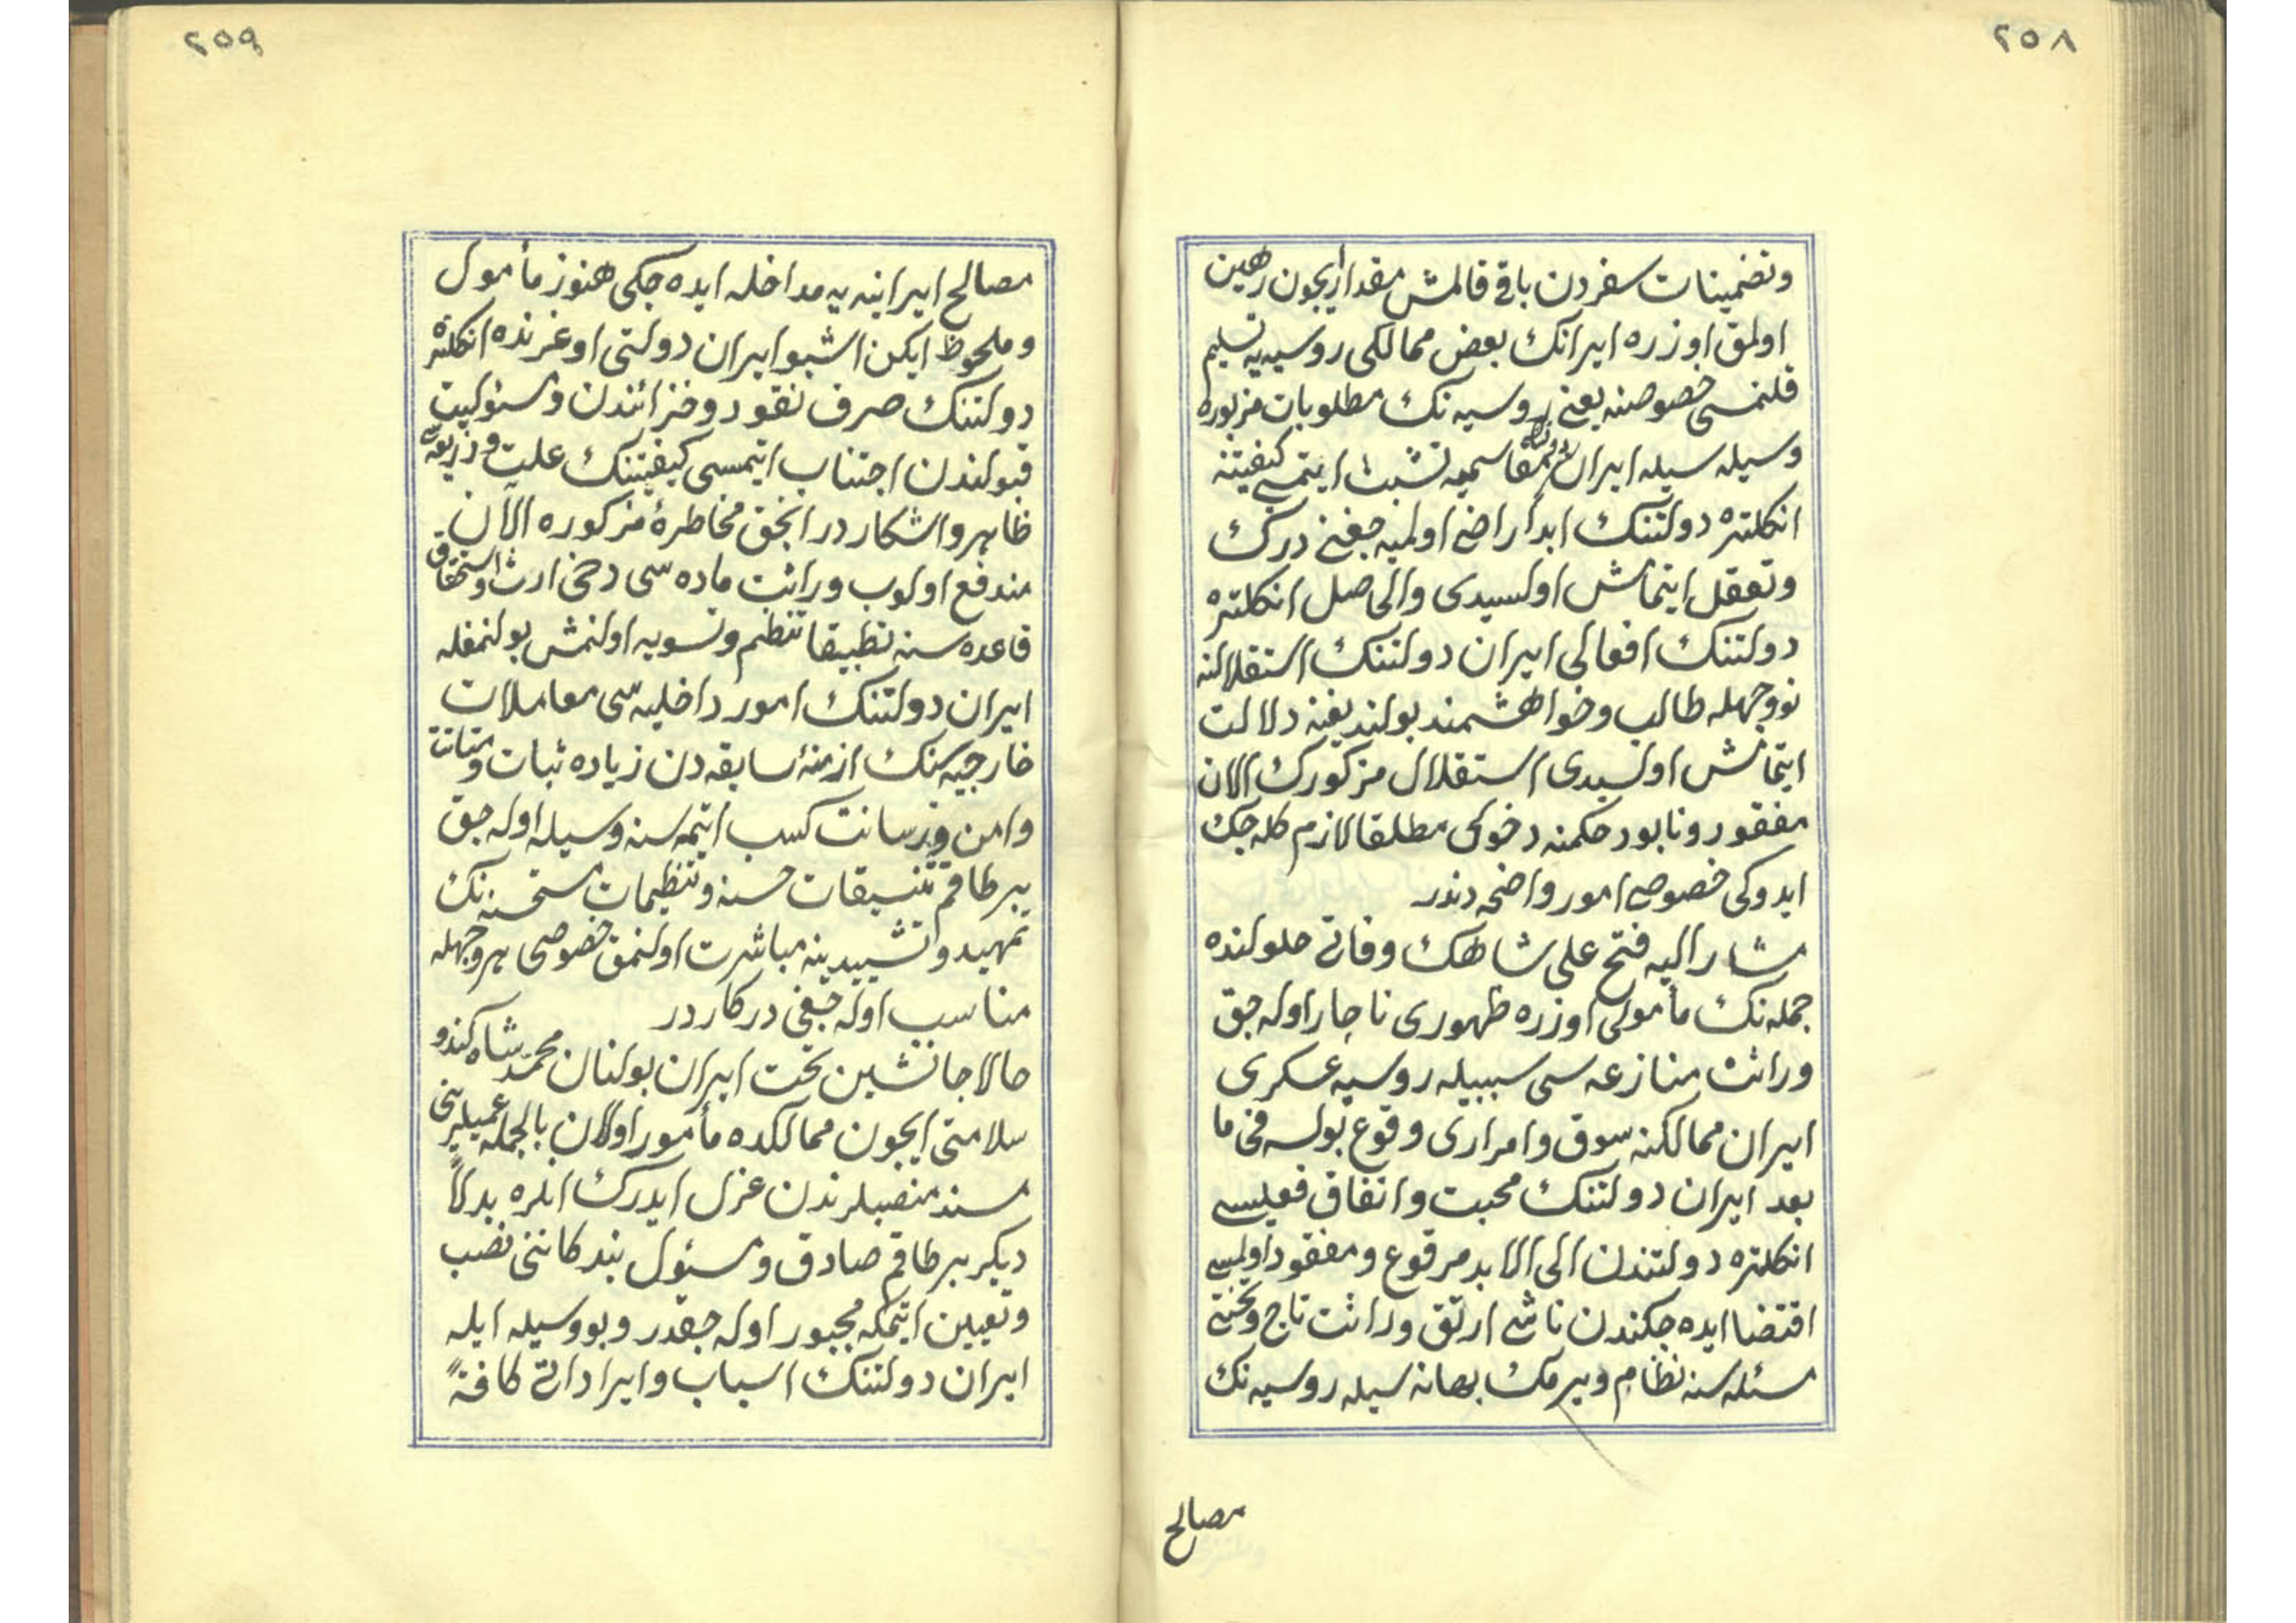 ٢٥٨
وتضمينات سفردن باقی قالمش مقدار ایچون رهین
اولمق اوزره ایرانك بعض ممالکی روسیه‌یه تسلیم
قلنمسی خصوصنه یعنی روسیه نك مطلوبات مزبوره
وسیله سیله ایران مقاسمه‌یه تشبث ایتمسی کیفیتنه
انکلتره دولتنك ابدا راضی اولمیه جغنی درك
وتعقل ایتمامش اولسیدی والحاصل انکلتره
دولتنك افعالی ایران دولتنك استقلالنه
نووجهله طالب وخواهشمند بولندیغنه دلالت
ایتمامش اولسیدی استقلال مزکورك الان
مفقود ونابود حکمنه دخولی مطلقا لازم کله جك
ایدوکی خصوصی امور واضحه دندر
مشار الیه فتح علی شاهك وفاتی حلولنده
جمله نك مأمولی اوزره ظهوری ناچار اوله جق
وراثت منازعه سی سببیله روسیه عسکری
ایران ممالکنه سوق وامراری وقوع بولسه فی ما
بعد ایران دولتنك محبت واتفاق فعلیسی
انکلتره دولتندن الی الابد مرفوع ومفقود اولمسی
اقتضا ایده جکندن ناشی ارتق وراثت تاج وتختی
مسئله سنه نظام ویرمك بهانه سیله روسیه نك
مصالح
٢٥٩
مصالح ایرانیه یه مداخله ایده جکی هنوز مأمول
وملحوظ ایکن اشبو ایران دولتی اوغرنده انکلتره
دولتنك صرف نقود وخزائندن ومسئولیت
قبولندن اجتناب ایتمسی کیفیتنك علت وذریعه‌سی
ظاهر واشکار در انجق مخاطرهٔ مزکوره الآن
مندفع اولوب وراثت ماده سی دخی ارث واستحقاق
قاعده سنه تطبیقا تنظیم وتسویه اولنمش بولنمغله
ایران دولتنك امور داخلیه سی معاملات
خارجیه سنك ازمنهٔ سابقه دن زیاده ثبات ومتانت
وامن ورسانت کسب ایتمه سنه وسیله اوله جق
بر طاقم تنسیقات حسنه وتنظیمات مستحسنه نك
تمهید وتشییدینه مباشرت اولنمق خصوصی هر وجهله
مناسب اوله جغی درکار در
حالا جانشین تخت ایران بولنان محمد شاه کندو
سلامتی ایچون ممالکده مأمور اولان بالجمله عمیلرینی
مسند منصبلرندن عزل ایدرك انلره بدلاً
دیکر بر طاقم صادق ومسئول بندکاننی نصب
وتعیین ایتمکه مجبور اوله جقدر وبو وسیله ایله
ایران دولتنك اسباب وایراداتی کافةً